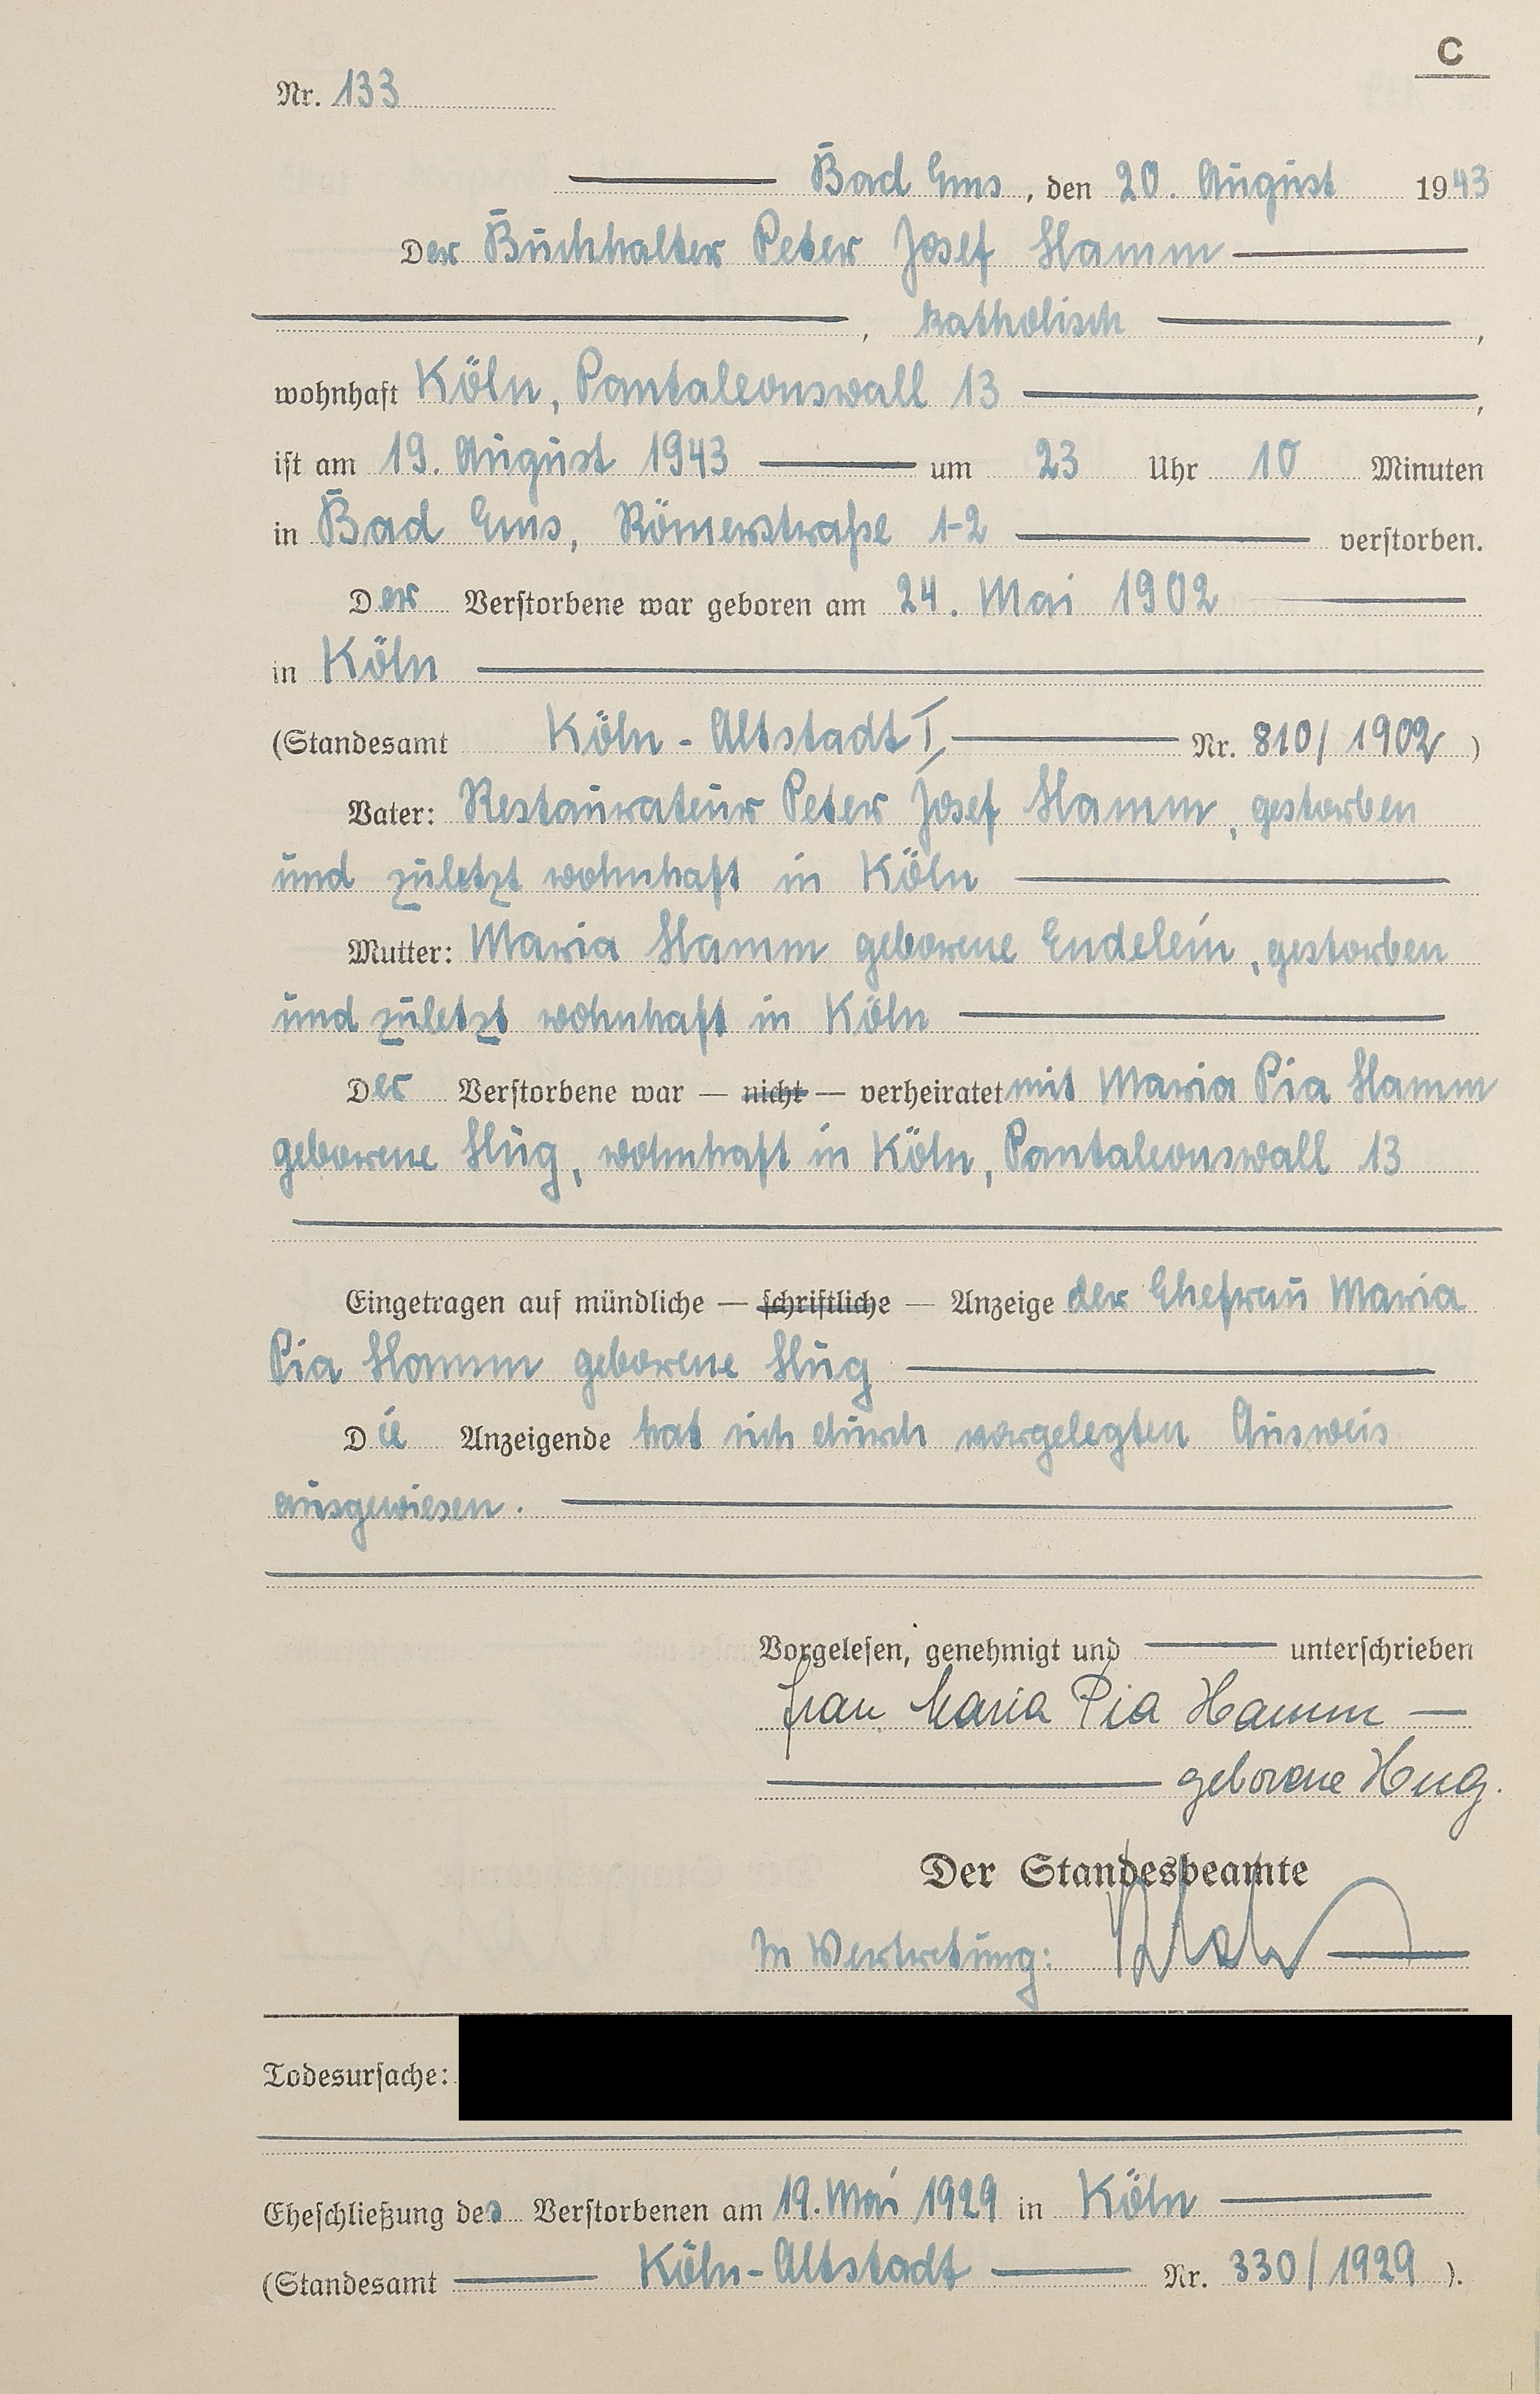 C
Nr. 133
Bad Ems, den 20. August 1943
Der Buchhalter Peter Josef Hamm
, katholisch ,
wohnhaft Köln, Pantaleonswall 13 ,
ist am 19. August 1943 um 23 Uhr 10 Minuten
in Bad Ems, Römerstraße 1-2 verstorben.
Der Verstorbene war geboren am 24. Mai 1902
in Köln
(Standesamt Köln-Altstadt I Nr. 810/1902)
Vater: Restaurateur Peter Josef Hamm, gestorben
und zuletzt wohnhaft in Köln
Mutter: Maria Hamm geborene Endelein, gestorben
und zuletzt wohnhaft in Köln
Der Verstorbene war — nicht — verheiratet mit Maria Pia Hamm
geborene Hug, wohnhaft in Köln, Pantaleonswall 13
Eingetragen auf mündliche — schriftliche — Anzeige der Ehefrau Maria
Pia Hamm geborene Hug
Die Anzeigende hat sich durch vorgelegten Ausweis
ausgewiesen.
Vorgelesen, genehmigt und unterschrieben
Frau Maria Pia Hamm
geborene Hug.
Der Standesbeamte
In Vertretung:
Todesursache:
Eheschließung des Verstorbenen am 19. Mai 1929 in Köln
(Standesamt Köln-Altstadt Nr. 330/1929).